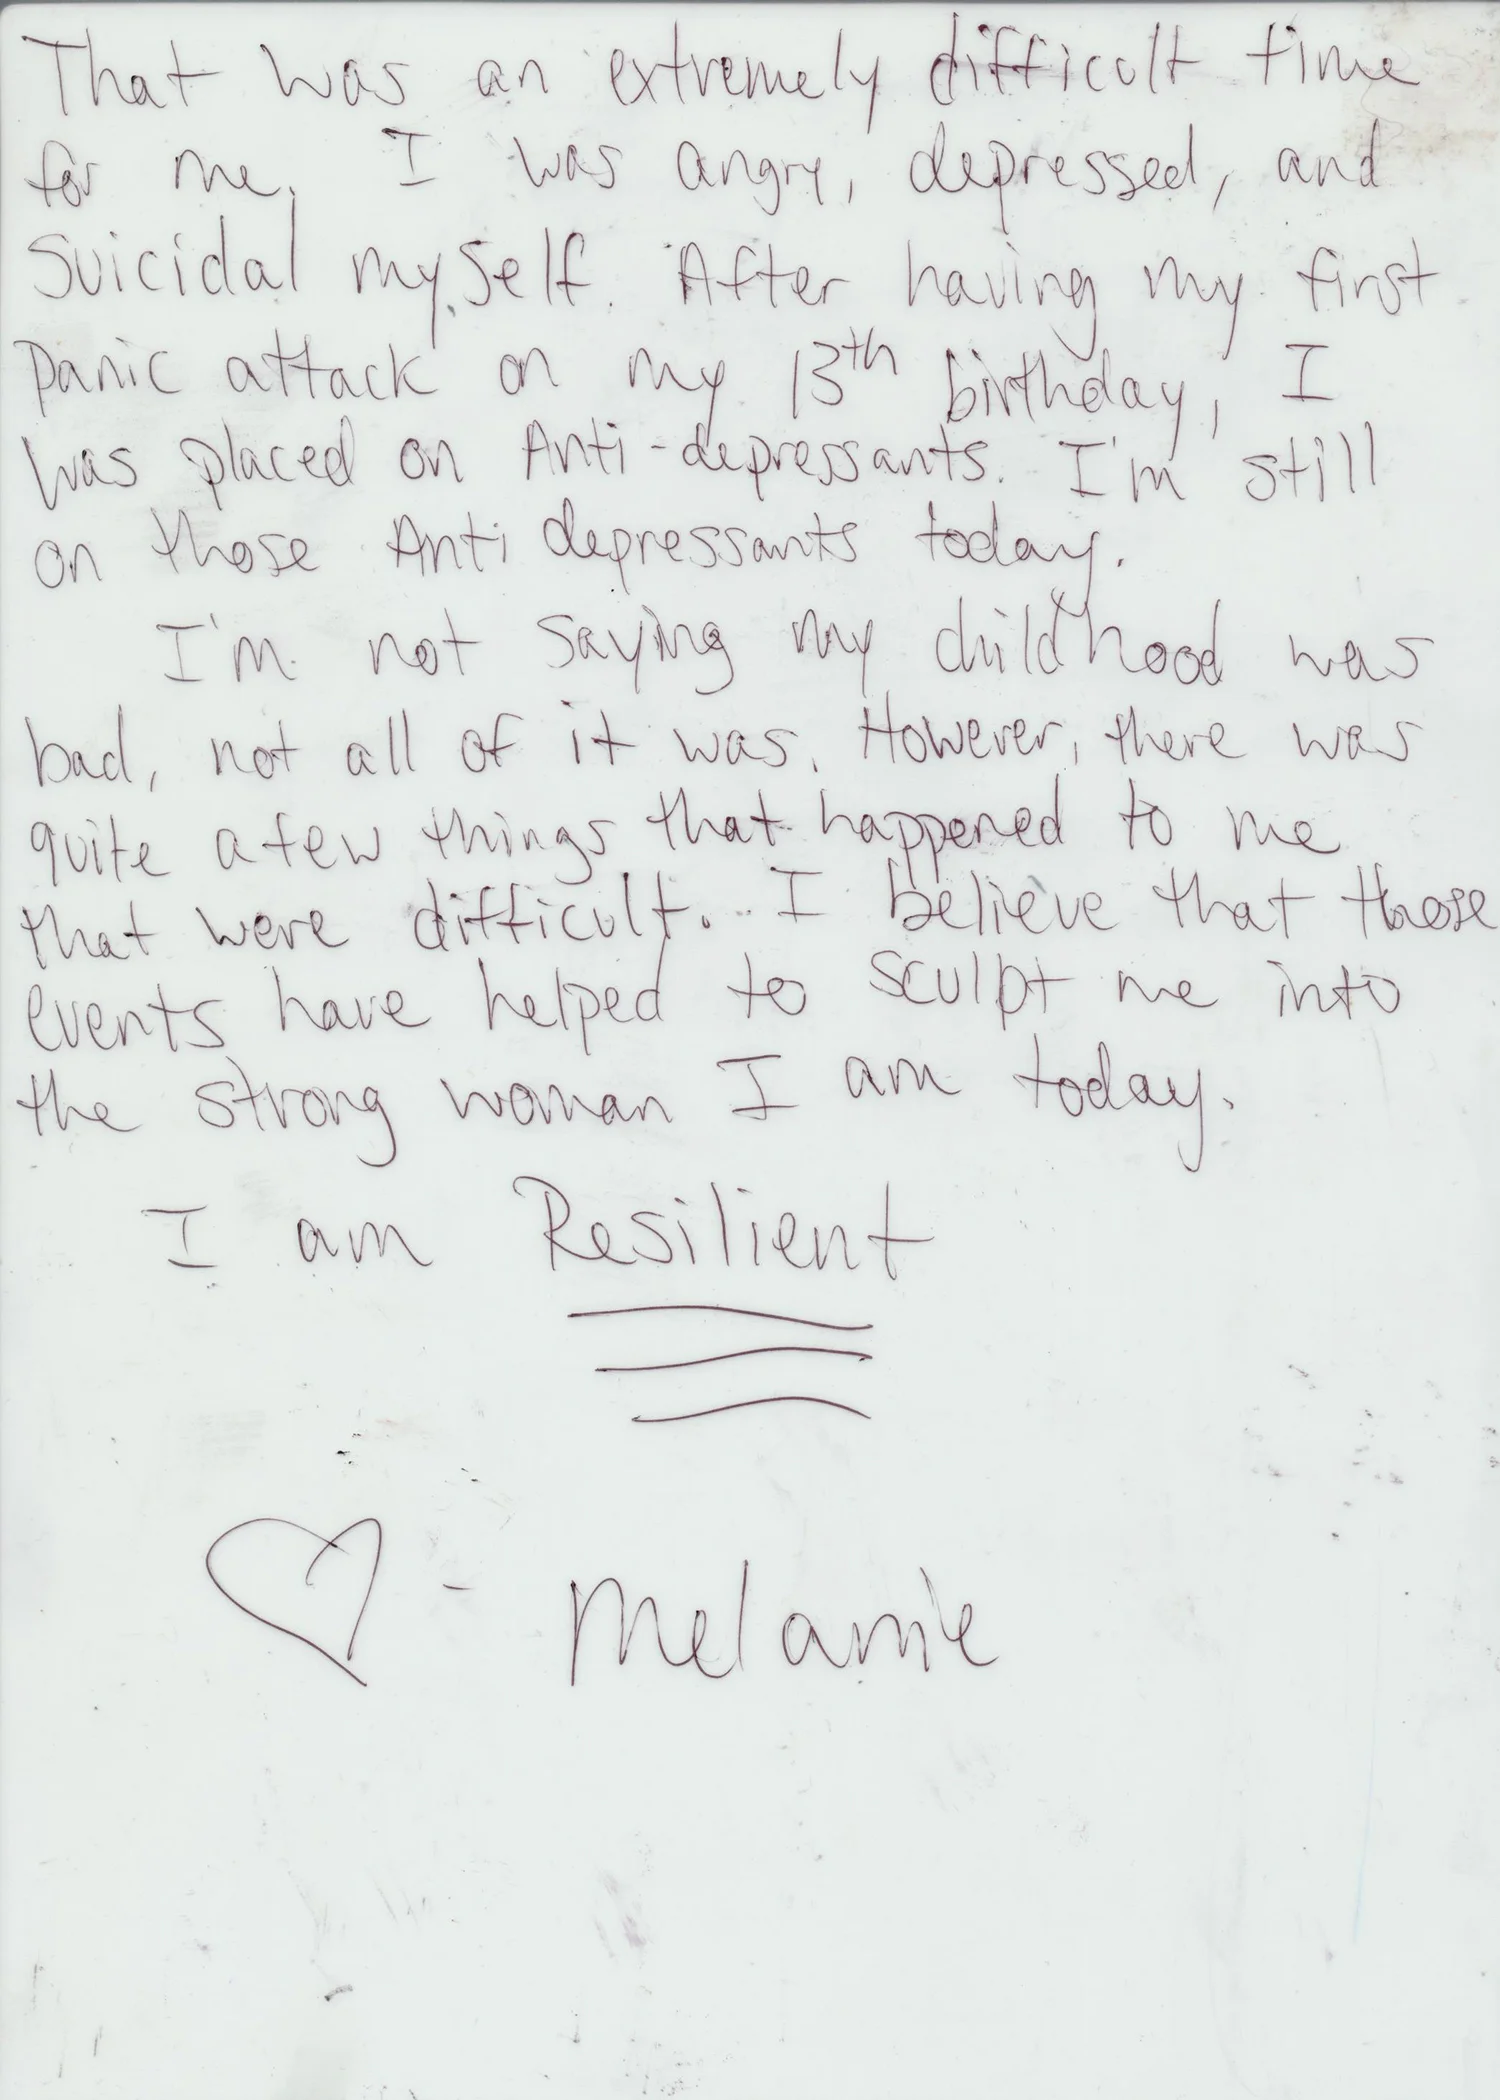 That was an extremely difficult time
for me. I was angry, depressed, and
suicidal myself. After having my first
panic attack on my 13th birthday, I
was placed on Anti-depressants. I'm still
on those Anti depressants today.
I'm not saying my childhood was
bad, not all of it was. However, there was
quite a few things that happened to me
that were difficult. I believe that those
events have helped to sculpt me into
the strong woman I am today.
I am Resilient
- Melanie